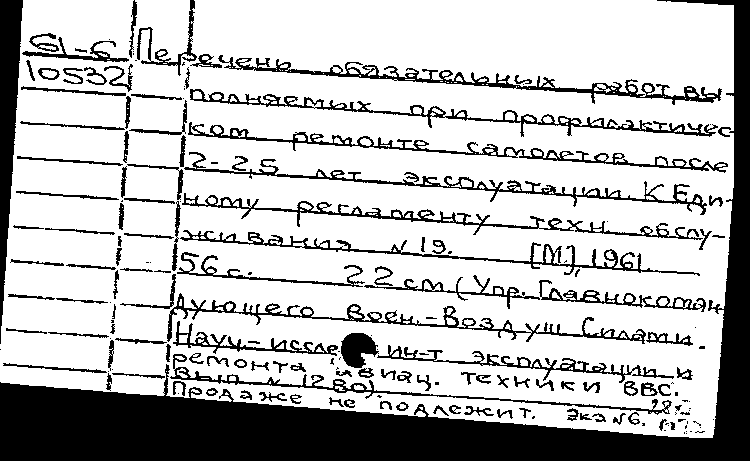 61-6
10532
Перечень обязательных работ, вы-
полняемых при профилактичес-
ком ремонте самолетов после
2-2,5 лет эксплуатации. К Еди-
ному регламенту техн. обслу-
живания №19. [М], 1961.
56 с. 22 см. (Упр. Главнокоман-
дующего Воен.-Воздуш Силами.
Науч-иссле ин-т эксплуатации и
ремонта авиац. техники ВВС.
Вып № 1280).
Продаже не подлежит. Экз №6.